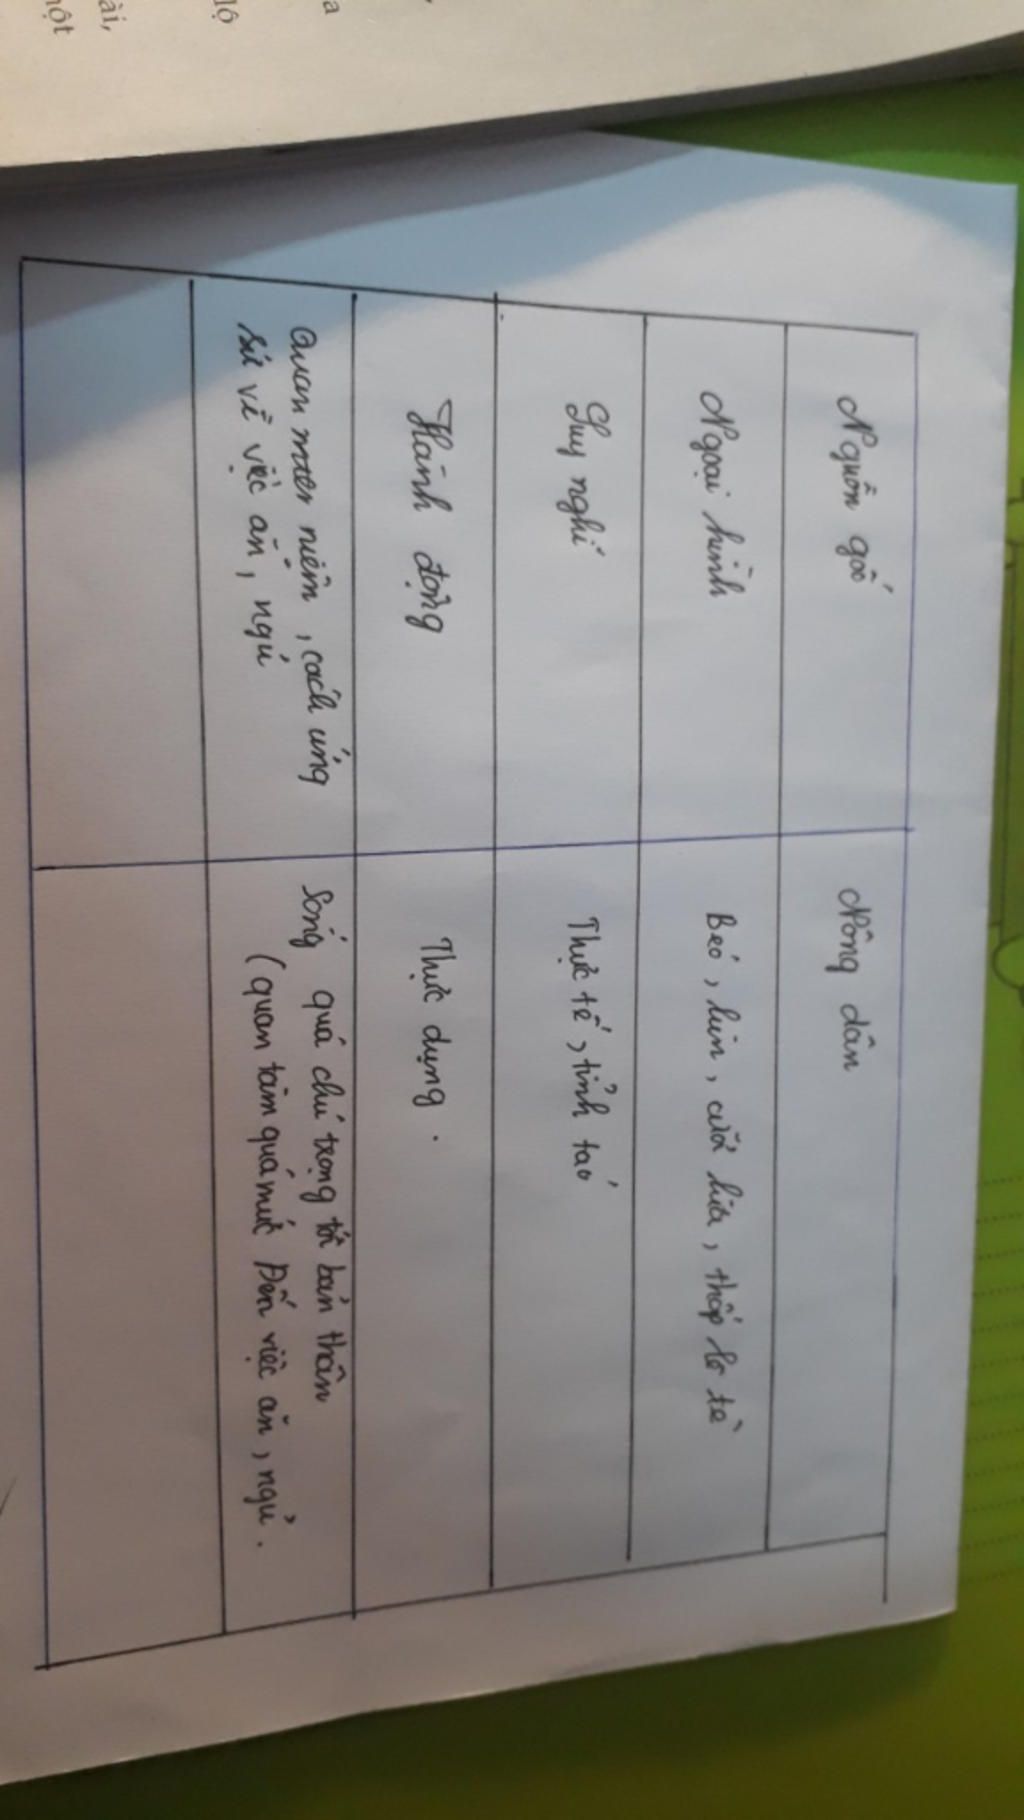 Nguồn gốc
Nông dân
Ngoại hình
Béo, lùn, cưỡi lừa, thấp lè tè
Suy nghĩ
Thực tế, tỉnh táo
Hành động
Thực dụng.
Quan niệm, cách ứng
sử về việc ăn, ngủ
Sống quá chú trọng tới bản thân
(quan tâm quá mức Đến việc ăn, ngủ.
ột
ài,
lộ
a